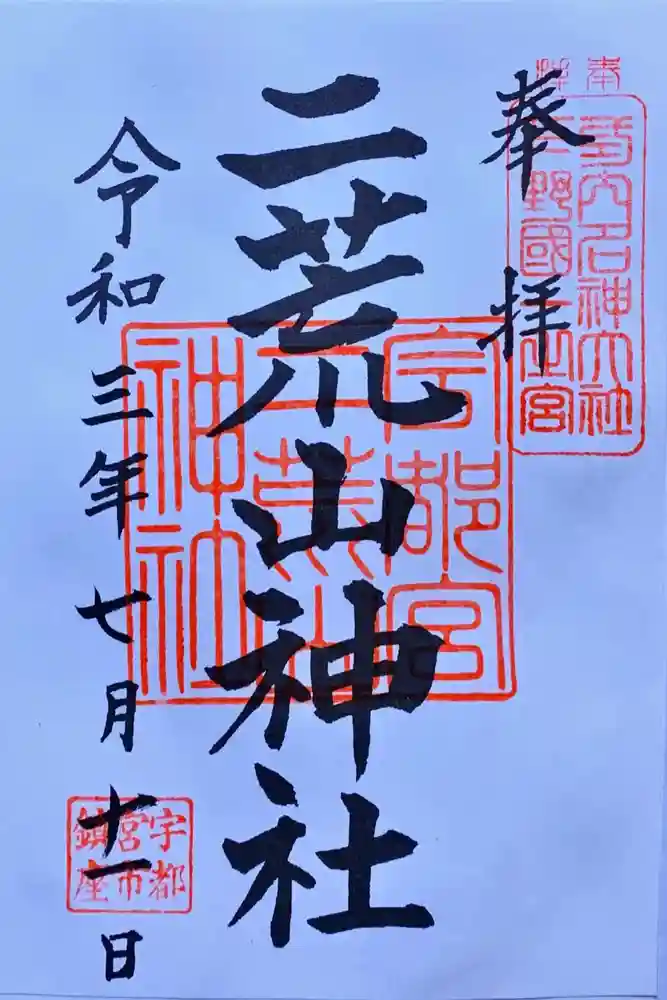 奉拝
延喜式内名神大社
下野國一之宮
奉拝
二荒山神社
宇都宮
二荒山
神社
令和三年七月十一日
宇都
宮市
鎮座